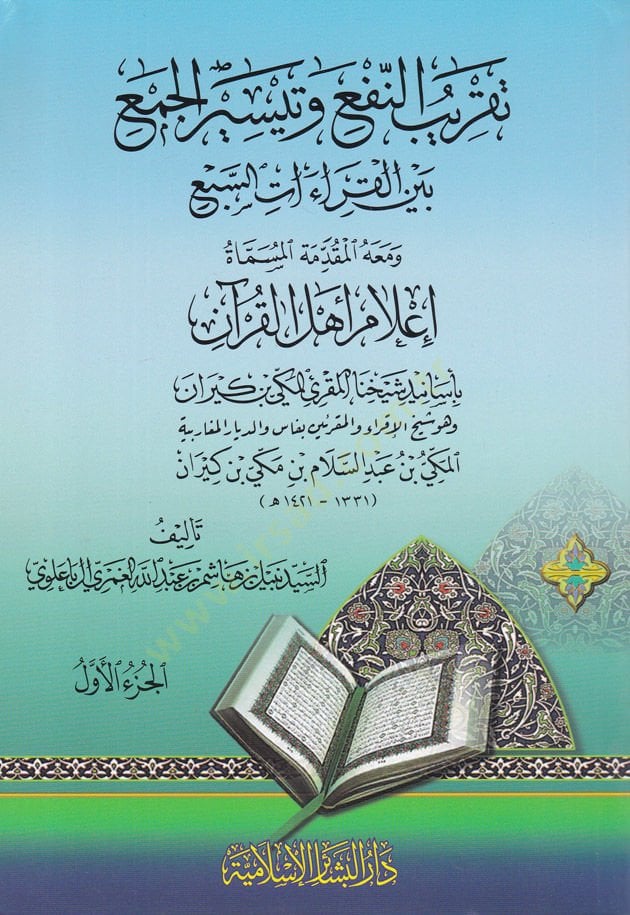 تقريب النفع وتيسير الجمع
بين القراءات السبع
ومعه المقدمة المسماة
إعلام أهل القرآن
بأسانيد شيخنا المقرئ المكي بن كيران
وهو شيخ الإقراء والمقرئين بفاس والديار المغاربية
المكي بن عبد السلام بن مكي بن كيران
(١٣٣١ - ١٤٢١ هـ)
تأليف
السيد نبيل بن هاشم بن عبد الله الغمري آل باعلوي
الجزء الأول
دار البشائر الإسلامية